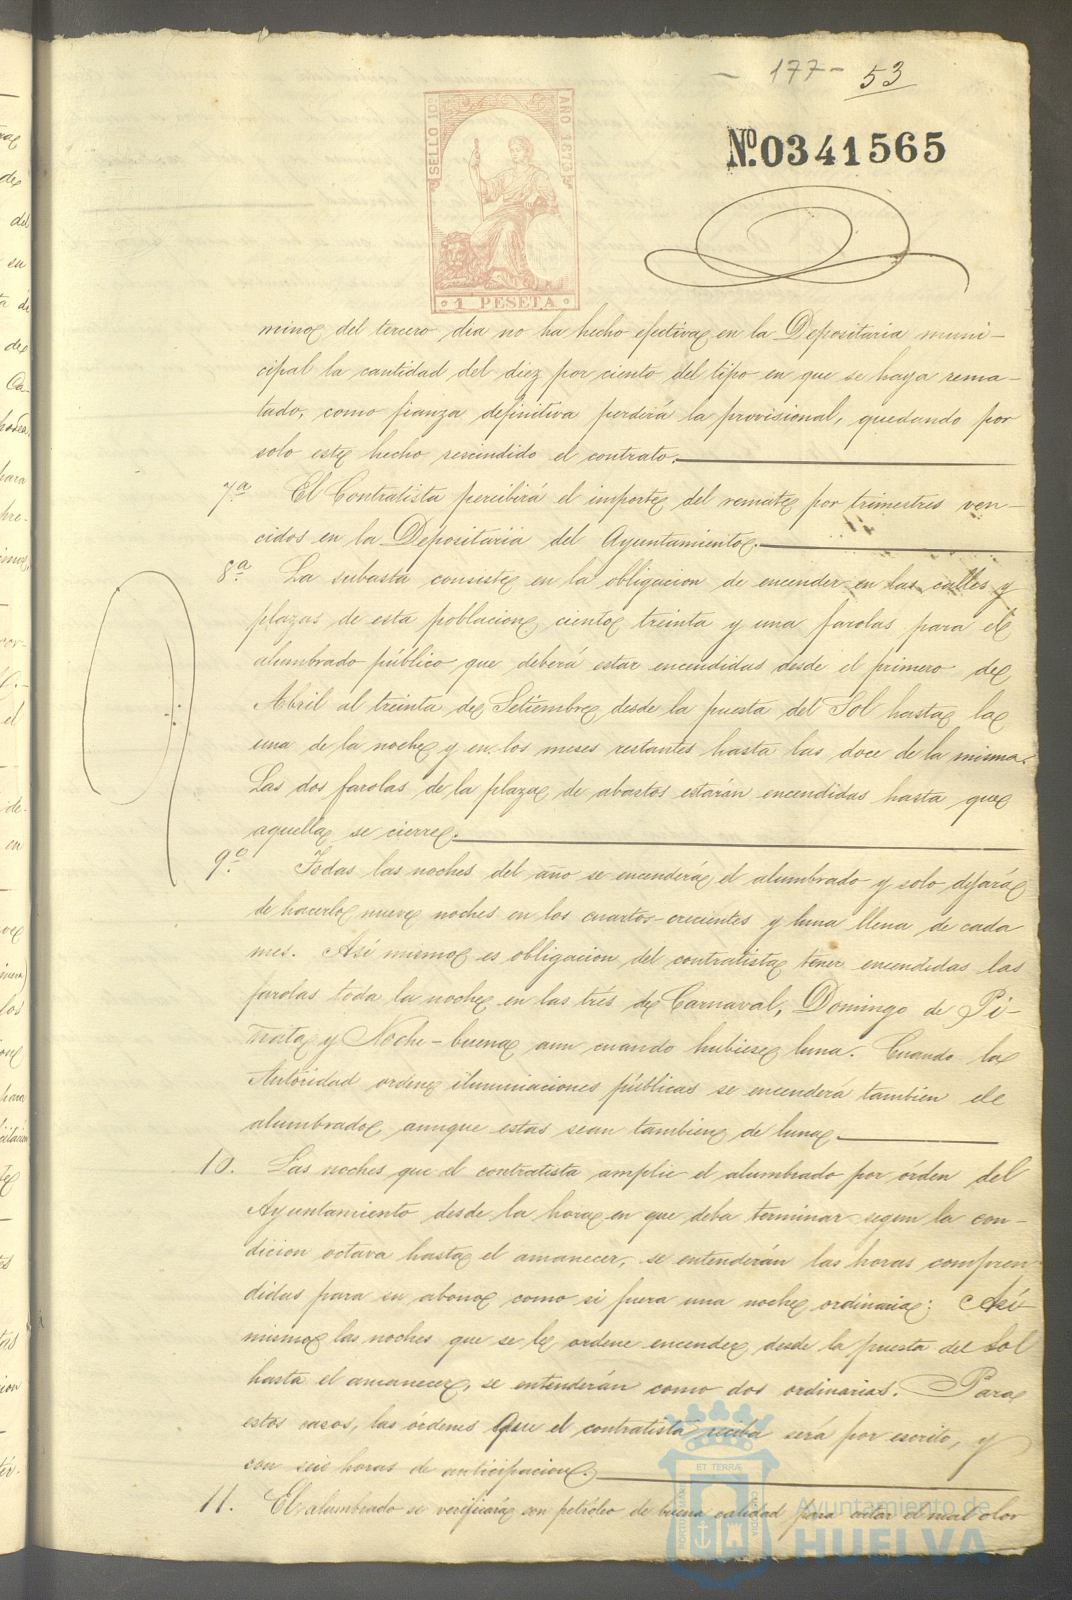 - 177 - 53
SELLO 10º AÑO 1873
Nº. 0341565
1 PESETA
mino del tercero dia no ha hecho efectiva en la Depositaria muni-
cipal la cantidad del diez por ciento del tipo en que se haya rema-
tado, como fianza definitiva perderá la provisional, quedando por
solo este hecho rescindido el contrato.
7ª. El Contratista percibirá el importe del remate por trimestres ven-
cidos en la Depositaria del Ayuntamiento.
8ª. La subasta consiste en la obligacion de encender en las calles y
plazas de esta poblacion ciento treinta y una farolas para el
alumbrado público que deberá estar encendidas desde el primero de
Abril al treinta de Setiembre desde la puesta del Sol hasta la
una de la noche y en los meses restantes hasta las doce de la misma.
Las dos farolas de la plaza de abastos estarán encendidas hasta que
aquella se cierre.
9ª. Todas las noches del año se encenderá el alumbrado y solo dejará
de hacerlo nueve noches en los cuartos-crecientes y luna llena de cada
mes. Asi mismo es obligacion del contratista tener encendidas las
farolas toda la noche en las tres de Carnaval, Domingo de Pi-
ñata y Noche-buena aun cuando hubiese luna. Cuando la
Autoridad ordene iluminaciones públicas se encenderá tambien el
alumbrado, aunque estas sean tambien de luna.
10. Las noches que el contratista amplie el alumbrado por órden del
Ayuntamiento desde la hora en que deba terminar segun la con-
dicion octava hasta el amanecer, se entenderán las horas compren
didas para su abono como si fuera una noche ordinaria; Asi
mismo las noches que se le ordene encender desde la puesta del Sol
hasta el amanecer, se entenderán como dos ordinarias. Para
estos casos, las órdenes que el contratista reciba será por escrito, y
con seis horas de anticipacion.
11. El alumbrado se verificará con petróleo de buena calidad para evitar el mal olor
ET TERRÆ
Ayuntamiento de
HUELVA